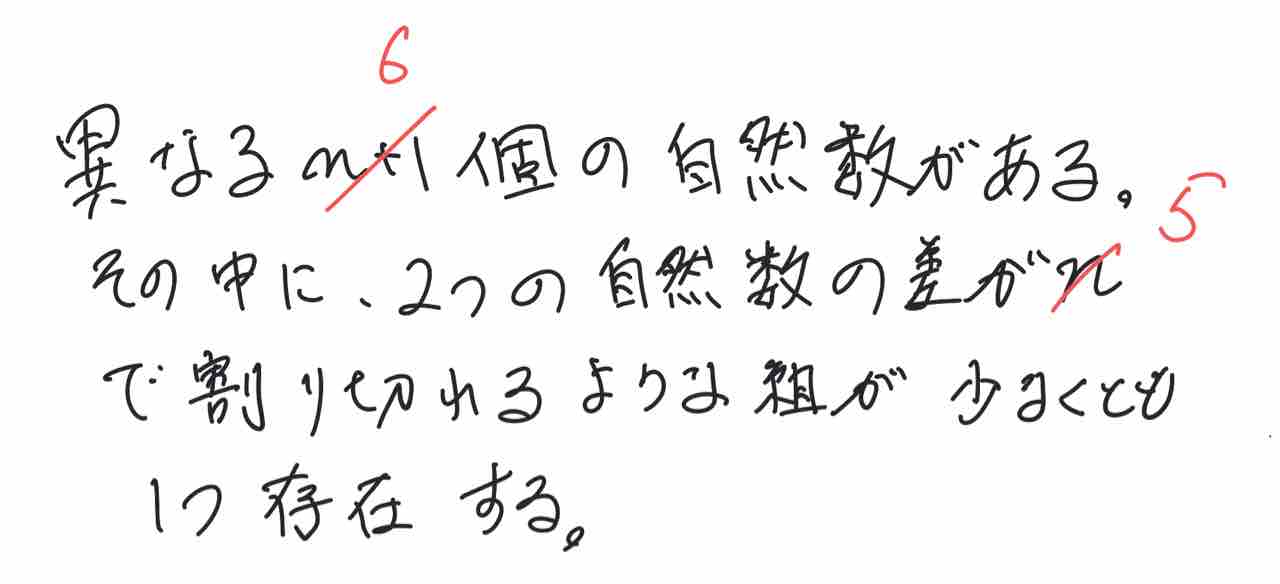 6
異なるn+1個の自然数がある。
5
その中に、2つの自然数の差がn
で割り切れるような組が少なくとも
1つ存在する。